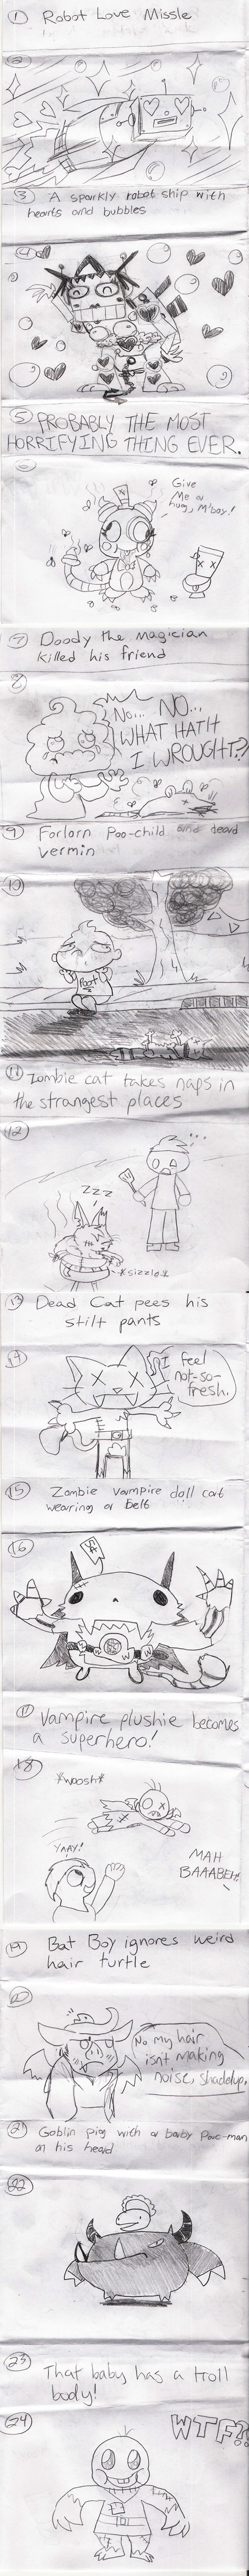 1 Robot Love Missle
2
3 A sparkly robot ship with
hearts and bubbles
4
5 PROBABLY THE MOST
HORRIFYING THING EVER.
6
Give
Me a
hug, M'boy!
7 Doody the magician
killed his friend
8
No... NO...
WHAT HATH
I WROUGHT?!
9 Forlorn Poo-child and dead
vermin
10
Poot
11 Zombie cat takes naps in
the strangest places
12
...
zzz
*sizzle*
13 Dead Cat pees his
stilt pants
14
I feel
not-so-
fresh.
15 Zombie vampire doll cat
wearing a belt
16
17 Vampire plushie becomes
a superhero!
18
*woosh*
YAAY!
MAH
BAAABEH!
19 Bat Boy ignores weird
hair turtle
20
No my hair
isn't making
noise, shaddup.
21 Goblin pig with a baby Pac-man
on his head
22
23 That baby has a troll
body!
24
WTF?!